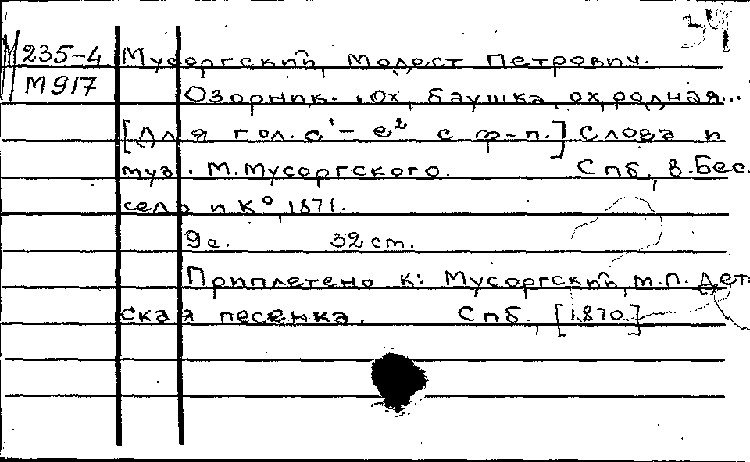 34
235-4 Мусоргский, Модест Петрович.
М917
Озорник. „Ох, баушка, ох, родная...
[Для гол. c¹ – e² с ф-п.] Слова и
муз. М. Мусоргского. Спб, В. Бес-
сель и К°, 1871.
9 с. 32 ст.
Приплетено к: Мусоргский, М.П. Дет-
ская песенка. Спб, [1870]